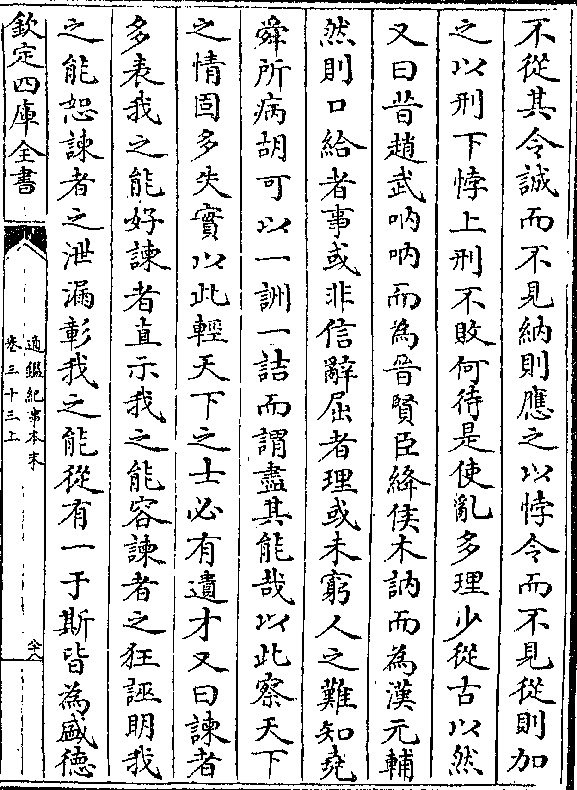 不從其令誠而不見納則應之以悖令而不見從則加
之以刑下悖上刑不敗何待是使亂多理少從古以然
又曰昔趙武呐呐而為晉賢臣絳侯木訥而為漢元輔
然則口給者事或非信辭屈者理或未窮人之難知堯
舜所病胡可以一詶一詰而謂盡其能哉以此察天下
之情固多失實以此輕天下之士必有遺才又曰諫者
多表我之能好諫者直示我之能容諫者之狂誣明我
之能恕諫者之泄漏彰我之能從有一于斯皆為盛德
欽定四庫全書
通鑑紀事本末
卷三十三上